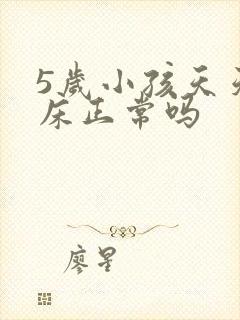 5歲小孩天天
床正常吗
廖星